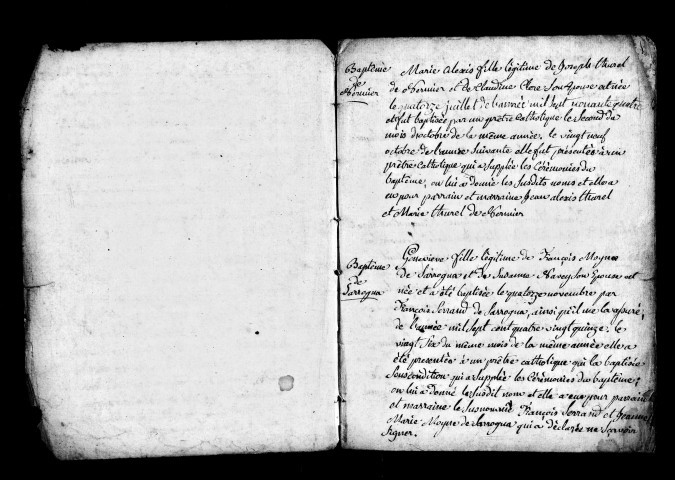 Baptême
de
Marie Alexis fille légitime de Joseph
de et de Claudine Clere Son Epouse est née
le quatorze juillet de l'année mil Sept nonante quatre
et fut baptisée par un prêtre Catholique le Second du
mois d'octobre de la même année. le vingt neuf
octobre de l'année Suivante elle fut présentée à un
prêtre Catholique qui a Supplée les Cérémonies du
baptême, on lui a donné les Susdits noms et elle a
eu pour parrain et marraine Jean alexis
et Marie de
Baptême
de
Sarrogna
Genevieve fille légitime de François Moyne
de Sarrogna et de Susanne Son Epouse est
née et a été baptisée le quatorze novembre par
François Serrand de Sarrogna, ainsi qu'il me l'a assuré,
de l'année mil Sept cent quatre vingt quinze, le
vingt Six du même mois de la même année elle a
été presentée à un prêtre catholique qui l'a baptisée
Sous condition qui a Supplée les Cérémonies du baptême;
on lui a donné le susdit nom et elle a eu pour parrain
et marraine le Susnommé François Serrand et Jeanne
Marie Moyne de Sarrogna qui a déclarés ne Scavoir
Signer.